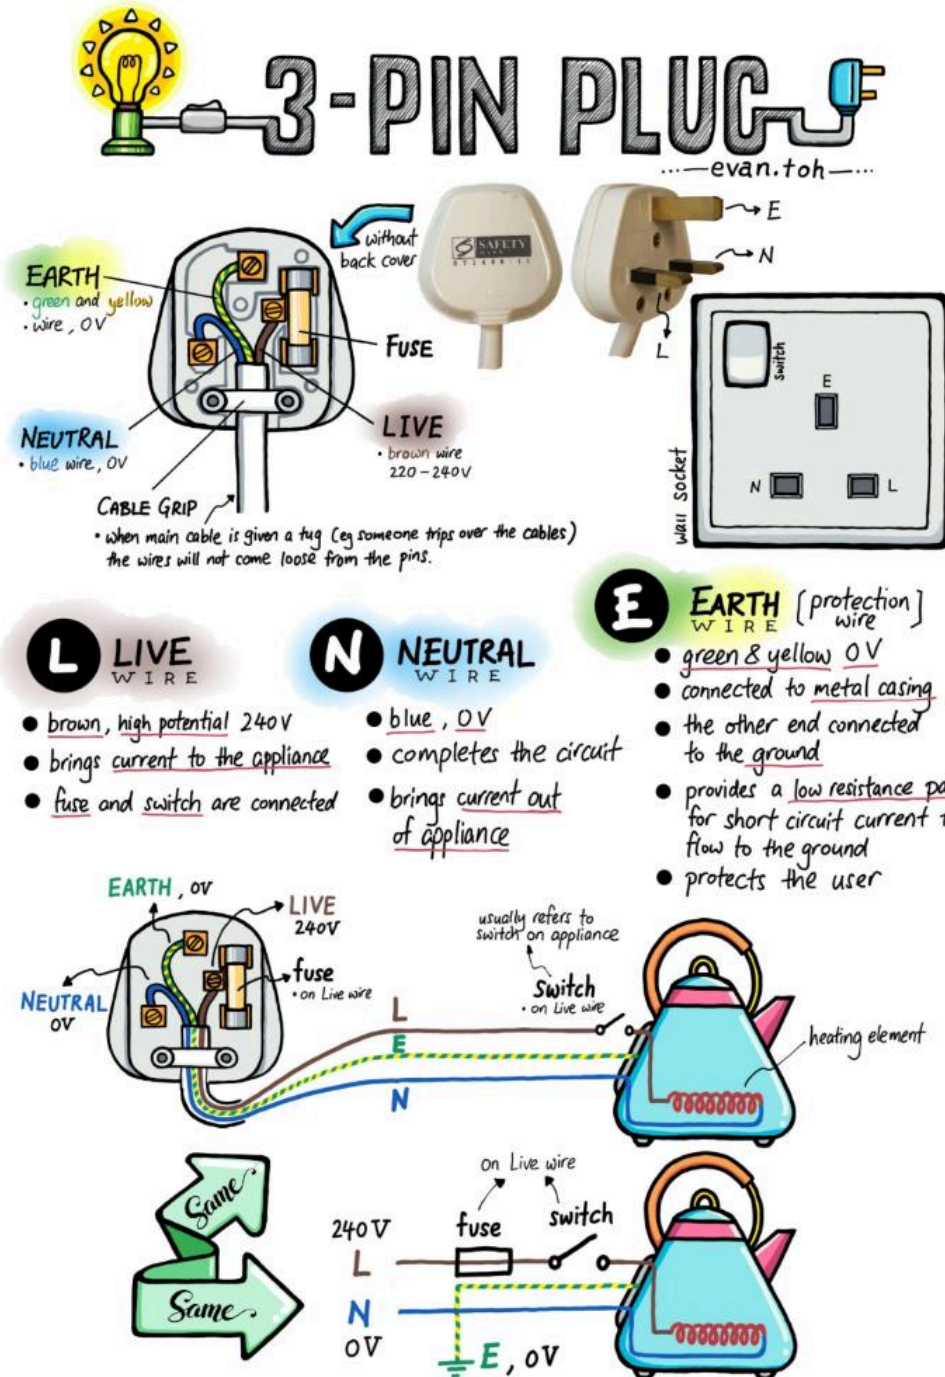 3-PIN PLUG
evan.toh
without
back cover
SAFETY
MARK
E
N
L
EARTH
• green and yellow
• wire, 0V
FUSE
NEUTRAL
• blue wire, 0V
LIVE
• brown wire
220-240V
CABLE GRIP
• when main cable is given a tug (eg someone trips over the cables)
the wires will not come loose from the pins.
switch
E
N
L
wall socket
L LIVE
WIRE
● brown, high potential 240V
● brings current to the appliance
● fuse and switch are connected
N NEUTRAL
WIRE
● blue, 0V
● completes the circuit
● brings current out
of appliance
E EARTH [protection
WIRE wire]
● green & yellow 0V
● connected to metal casing
● the other end connected
to the ground
● provides a low resistance pa
for short circuit current t
flow to the ground
● protects the user
EARTH, 0V
LIVE
240V
NEUTRAL
0V
fuse
• on Live wire
usually refers to
switch on appliance
switch
• on Live wire
L
E
N
heating element
Same
Same
on Live wire
fuse
switch
240V
L
N
0V
E, 0V